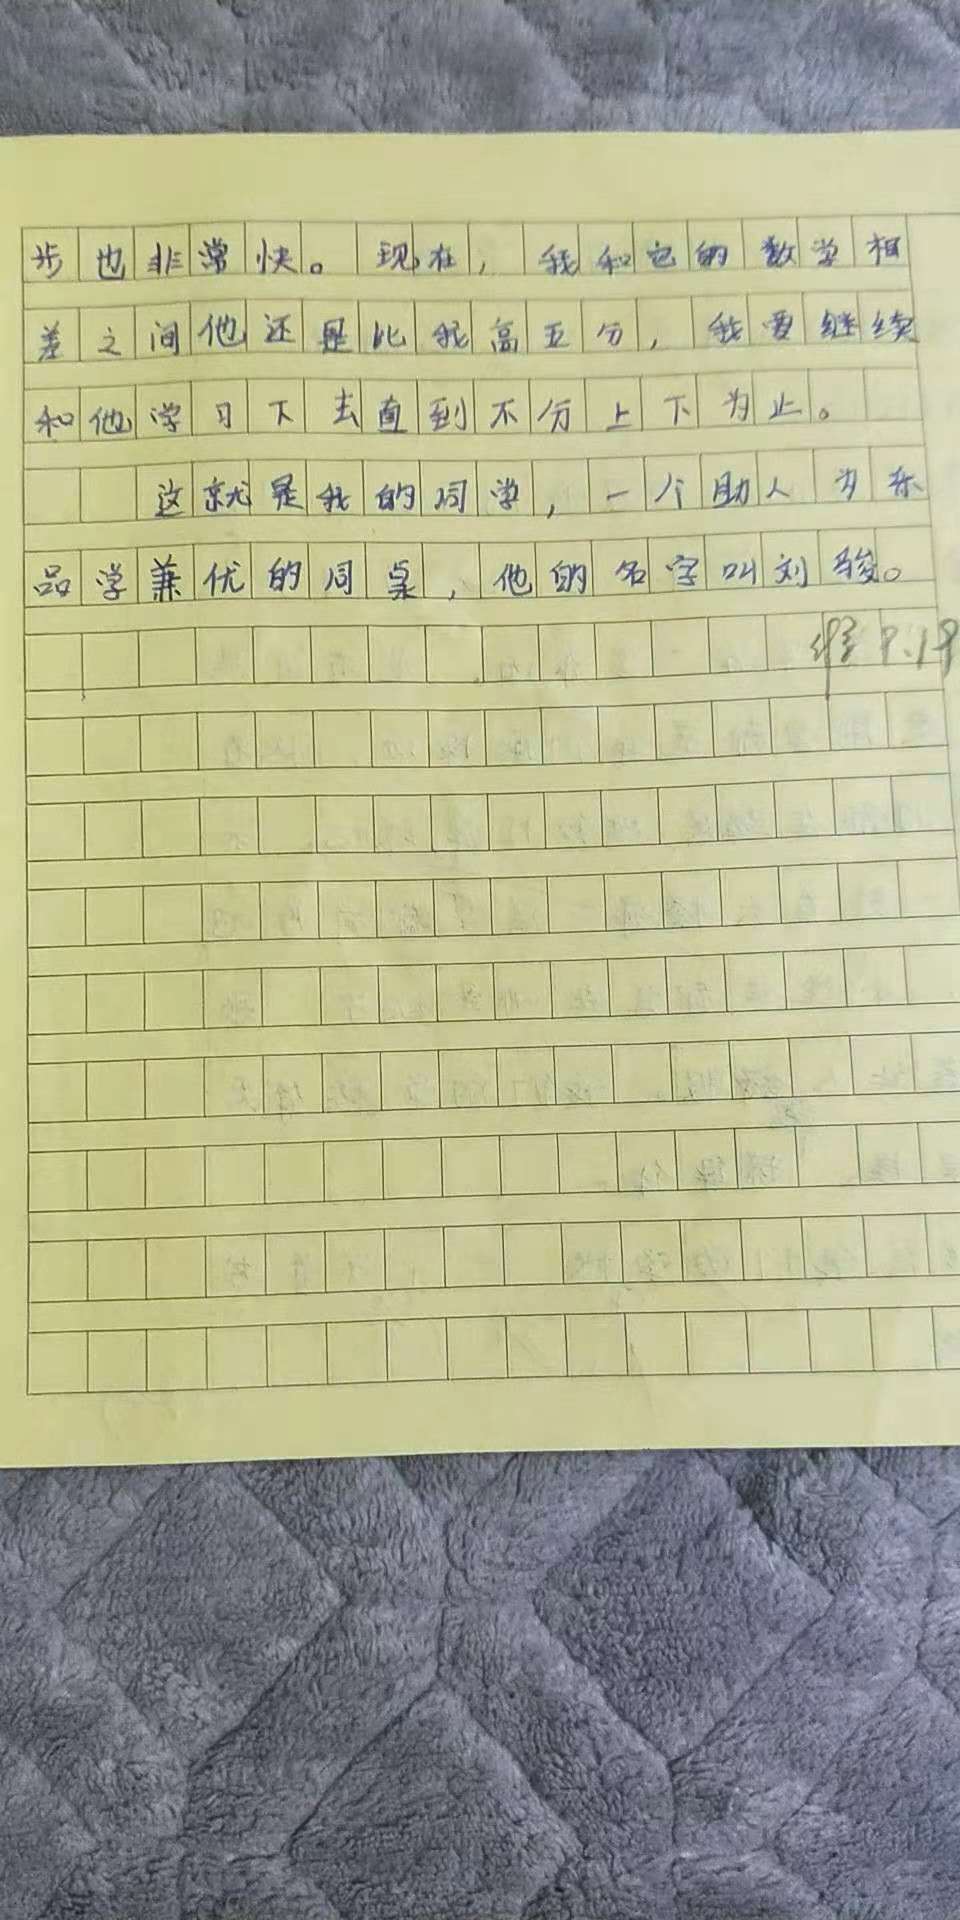 步也非常快。现在，我和它的数学相
差之间他还是比我高五分，我要继续
和他学习下去直到不分上下为止。
这就是我的同学，一个助人为乐
品学兼优的同桌，他的名字叫刘骏。
9.19